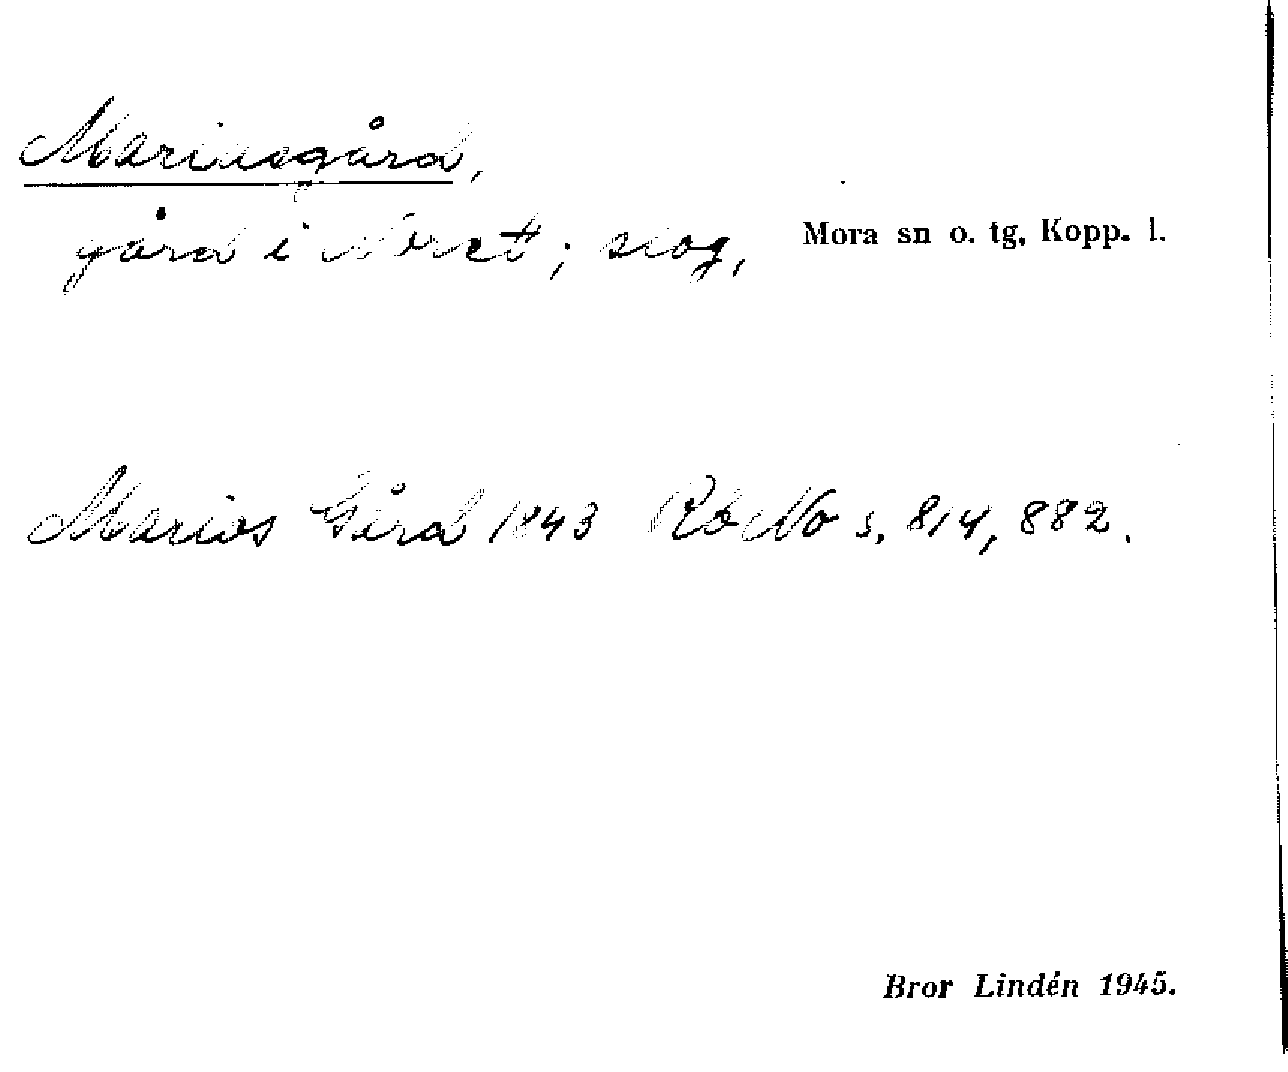 Mariusgård,
gård i Noret; skog,
Mora sn o. tg, Kopp. l.
Marios Gård 1843 Rb No s. 814, 882.
Bror Lindén 1945.